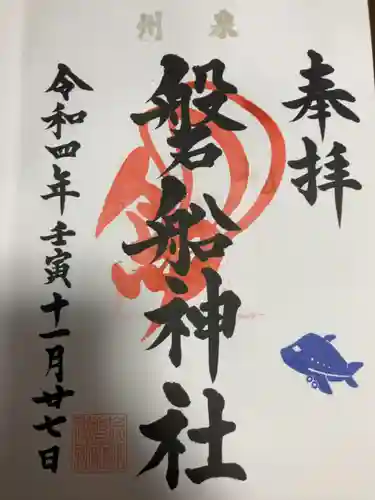 泉州
奉拝
磐船神社
令和四年壬寅十一月廿七日